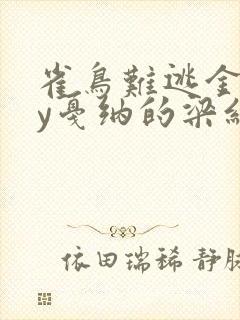 雀鳥難逃金
y戛纳的梁紅
依田瑞稀 静脉